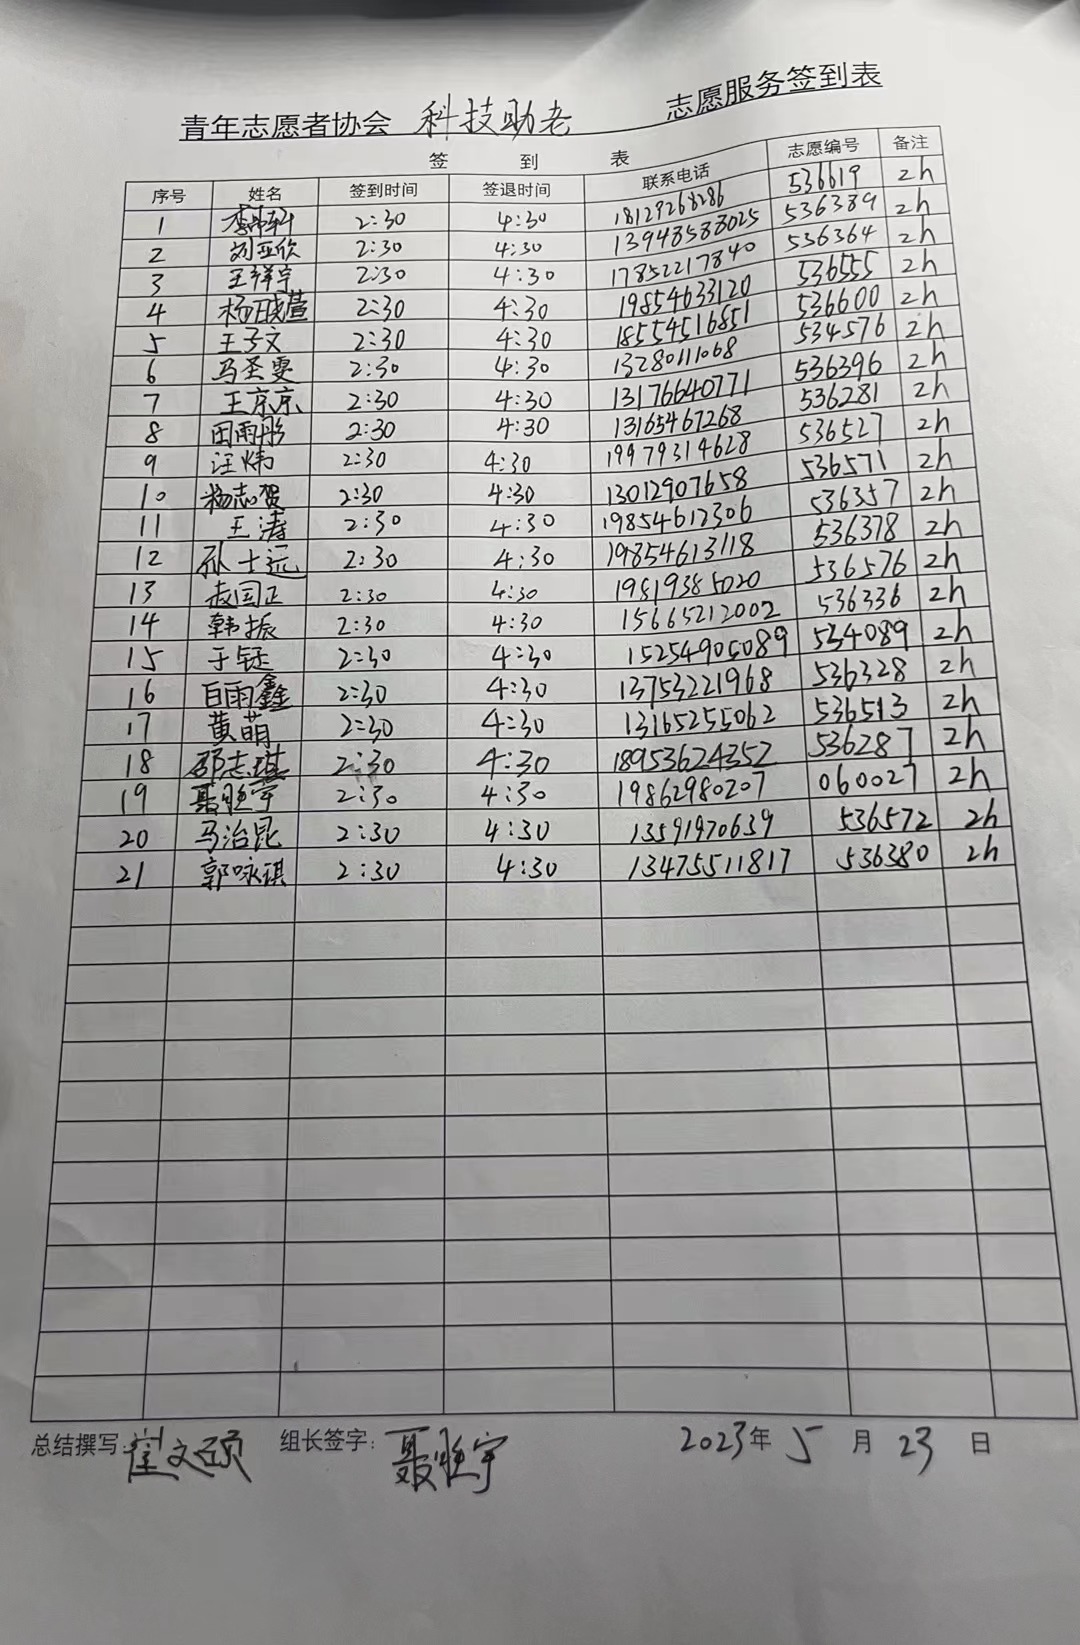 青年志愿者协会 科技助老 志愿服务签到表
签 到 表
序号 姓名 签到时间 签退时间 联系电话 志愿编号 备注
1 2:30 4:30 18129268286 536619 2h
2 刘亚欣 2:30 4:30 13948583025 536389 2h
3 王祥宇 2:30 4:30 17852217840 536364 2h
4 杨晓萱 2:30 4:30 19854633120 536555 2h
5 王子文 2:30 4:30 18554516851 536600 2h
6 马圣雯 2:30 4:30 13280111068 534576 2h
7 王京京 2:30 4:30 13176640771 536396 2h
8 田雨彤 2:30 4:30 13165467268 536281 2h
9 汪炜 2:30 4:30 19979314628 536527 2h
10 杨志贺 2:30 4:30 13012907658 536571 2h
11 王涛 2:30 4:30 19854612306 536357 2h
12 孙士远 2:30 4:30 19854613118 536378 2h
13 国正 2:30 4:30 19819385020 536576 2h
14 韩振 2:30 4:30 15665212002 536336 2h
15 于钰 2:30 4:30 15254905089 534089 2h
16 白雨鑫 2:30 4:30 13753221968 536328 2h
17 黄萌 2:30 4:30 13165255062 536513 2h
18 邵志琪 2:30 4:30 18953624352 536287 2h
19 聂胜宇 2:30 4:30 19862980207 060027 2h
20 马治昆 2:30 4:30 13591970639 536572 2h
21 郭咏琪 2:30 4:30 13475511817 536380 2h
总结撰写: 崔文硕 组长签字: 聂胜宇 2023年 5 月 23 日